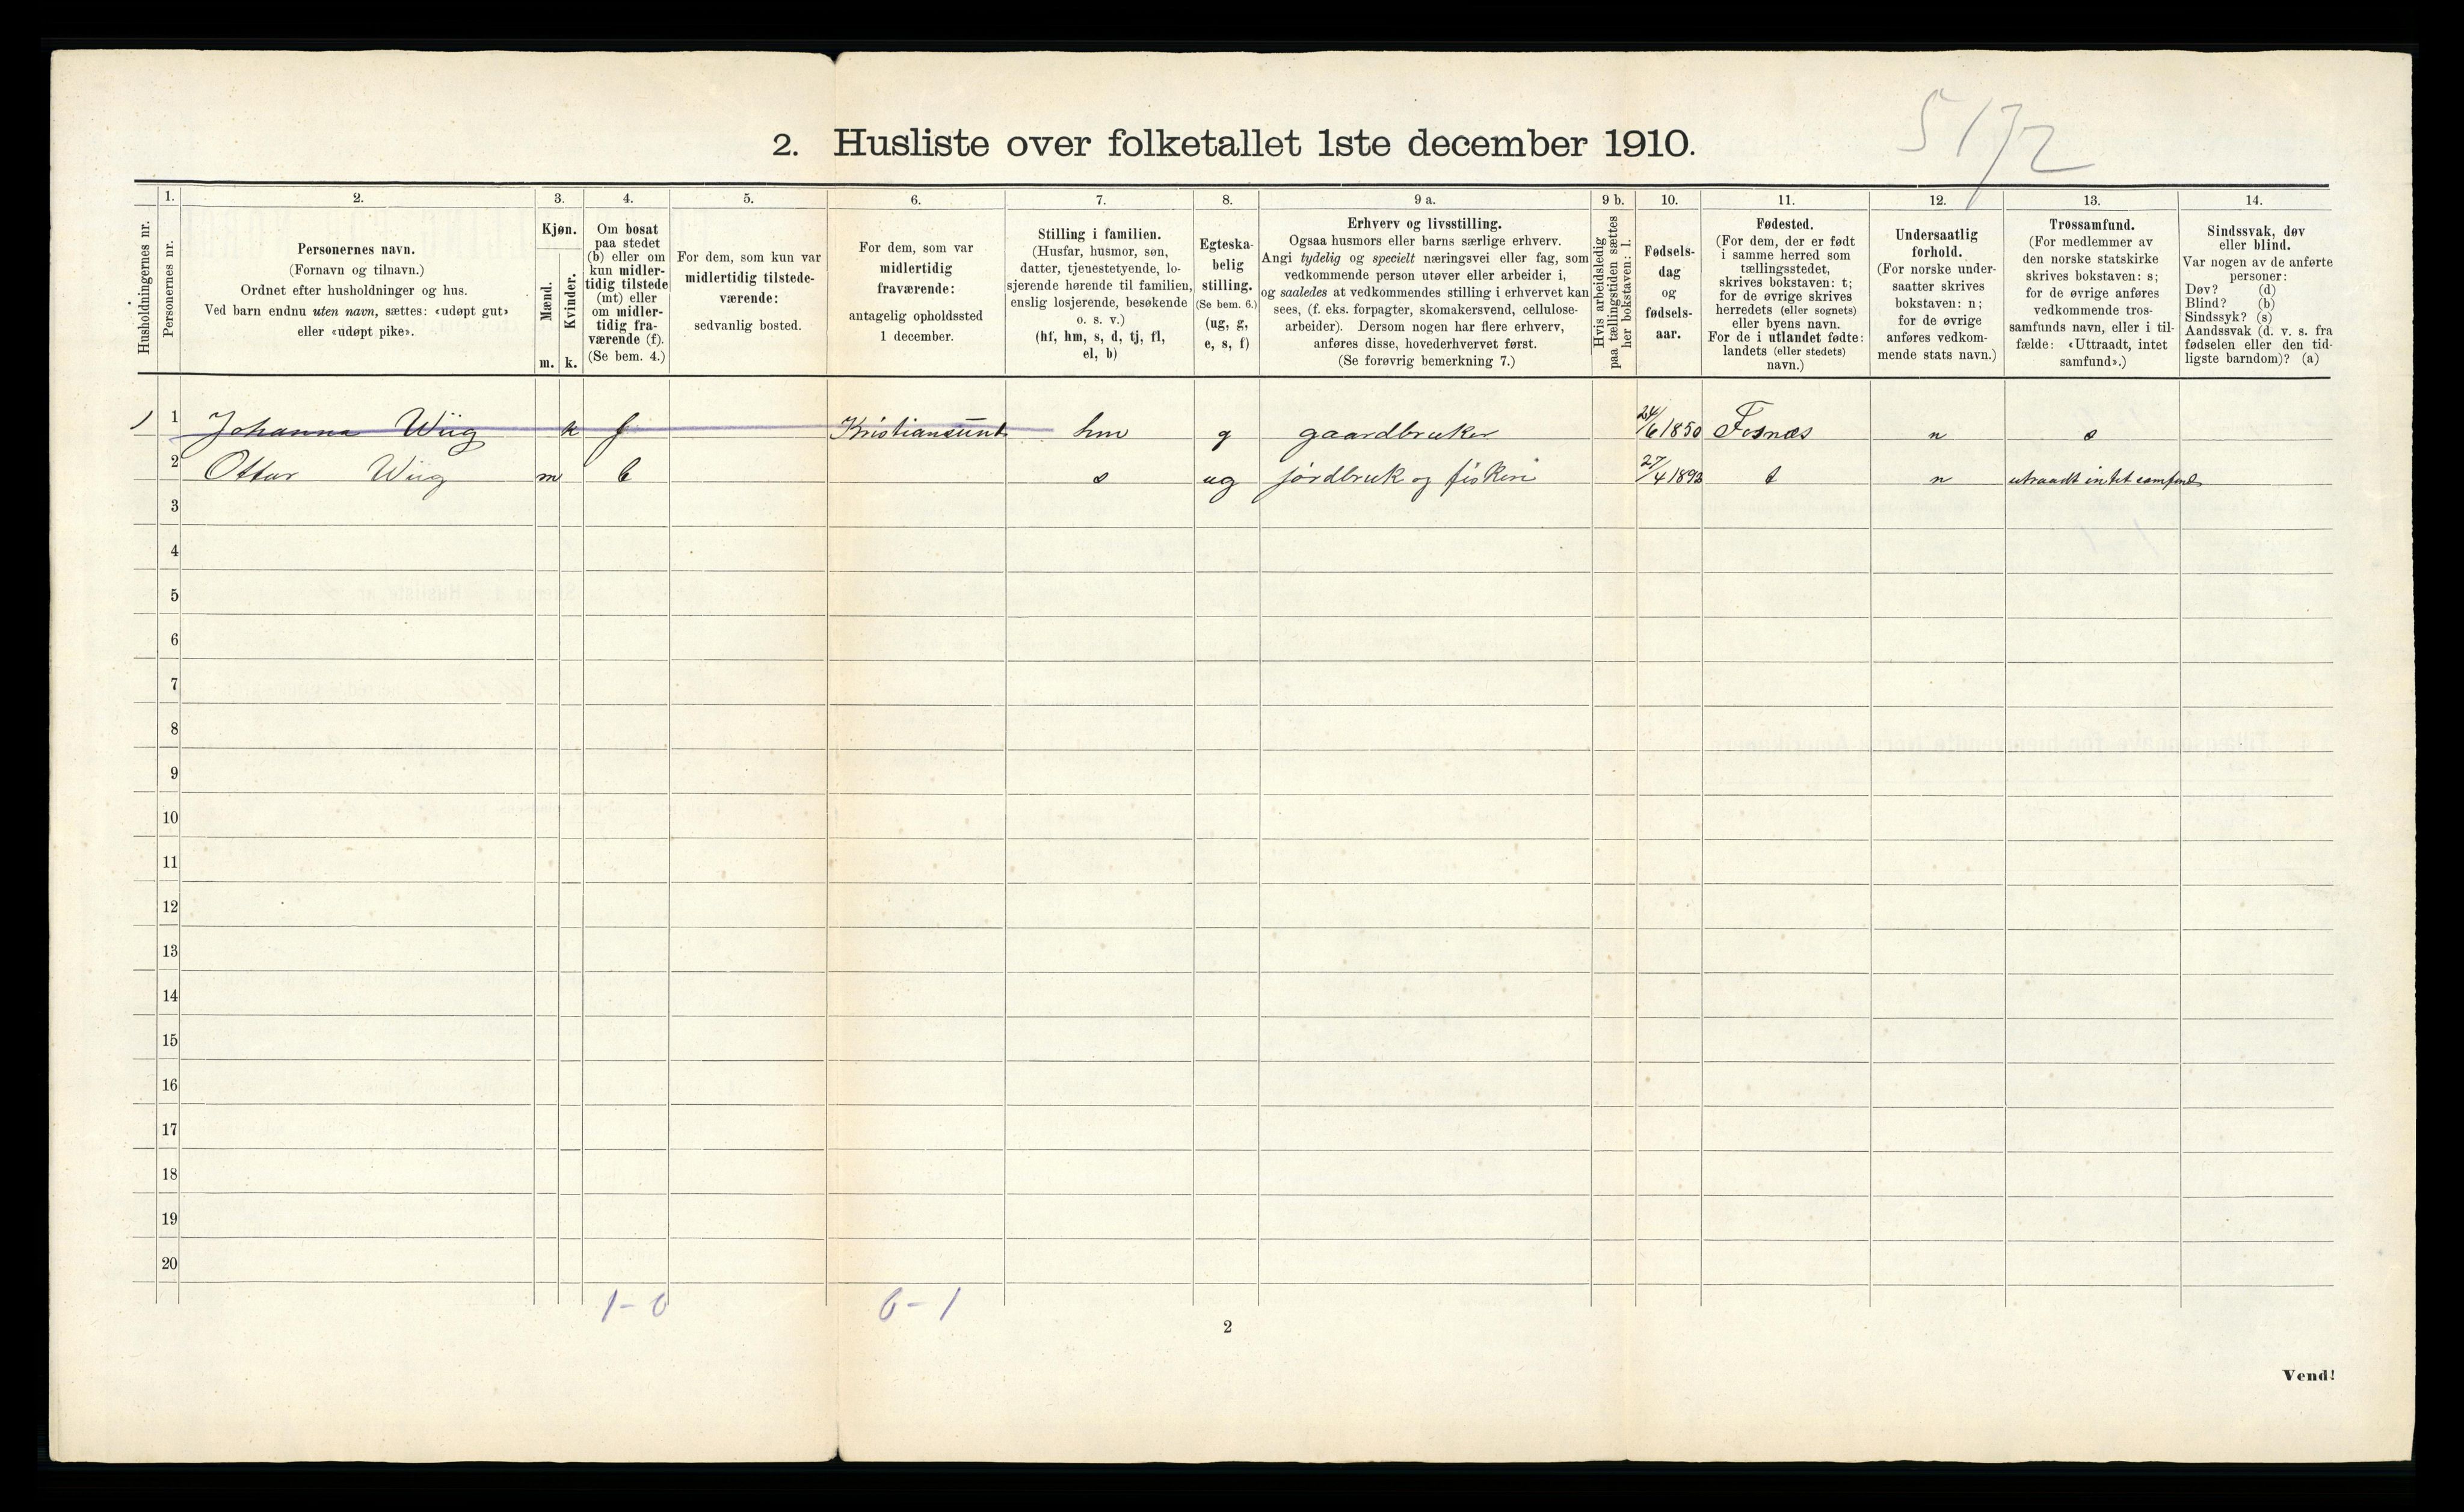 5172
2. Husliste over folketallet 1ste december 1910.
Husholdningernes nr.
1.
Personernes nr.
2.
Personernes navn.
(Fornavn og tilnavn.)
Ordnet efter husholdninger og hus.
Ved barn endnu uten navn, sættes: «udøpt gut»
eller «udøpt pike».
3.
Kjøn.
Mænd.
Kvinder.
m. k.
4.
Om bosat
paa stedet
(b) eller om
kun midler-
tidig tilstede
(mt) eller
om midler-
tidig fra-
værende (f).
(Se bem. 4.)
5.
For dem, som kun var
midlertidig tilstede-
værende:
sedvanlig bosted.
6.
For dem, som var
midlertidig
fraværende:
antagelig opholdssted
1 december.
7.
Stilling i familien.
(Husfar, husmor, søn,
datter, tjenestetyende, lo-
sjerende hørende til familien,
enslig losjerende, besøkende
o. s. v.)
(hf, hm, s, d, tj, fl,
el, b)
8.
Egteska-
belig
stilling.
(Se bem. 6.)
(ug, g,
e, s, f)
9 a.
Erhverv og livsstilling.
Ogsaa husmors eller barns særlige erhverv.
Angi tydelig og specielt næringsvei eller fag, som
vedkommende person utøver eller arbeider i,
og saaledes at vedkommendes stilling i erhvervet kan
sees, (f. eks. forpagter, skomakersvend, cellulose-
arbeider). Dersom nogen har flere erhverv,
anføres disse, hovederhvervet først.
(Se forøvrig bemerkning 7.)
9 b.
Hvis arbeidsledig
paa tællingstiden sættes
her bokstaven: l.
10.
Fødsels-
dag
og
fødsels-
aar.
11.
Fødested.
(For dem, der er født
i samme herred som
tællingsstedet,
skrives bokstaven: t;
for de øvrige skrives
herredets (eller sognets)
eller byens navn.
For de i utlandet fødte:
landets (eller stedets)
navn.)
12.
Undersaatlig
forhold.
(For norske under-
saatter skrives
bokstaven: n;
for de øvrige
anføres vedkom-
mende stats navn.)
13.
Trossamfund.
(For medlemmer av
den norske statskirke
skrives bokstaven: s;
for de øvrige anføres
vedkommende tros-
samfunds navn, eller i til-
fælde: «Uttraadt, intet
samfund».)
14.
Sindssvak, døv
eller blind.
Var nogen av de anførte
personer:
Døv? (d)
Blind? (b)
Sindssyk? (s)
Aandssvak (d. v. s. fra
fødselen eller den tid-
ligste barndom)? (a)
1 Johanna Wiig k f Kristiansund hm g gaardbruker 24/6 1850 Fosnæs n s
2 Ottar Wiig m b s ug jordbruk og fiskeri 27/4 1893 t n utraadt intet samfund
3
4
5
6
7
8
9
10
11
12
13
14
15
16
17
18
19
20
1-0 0-1
2
Vend!